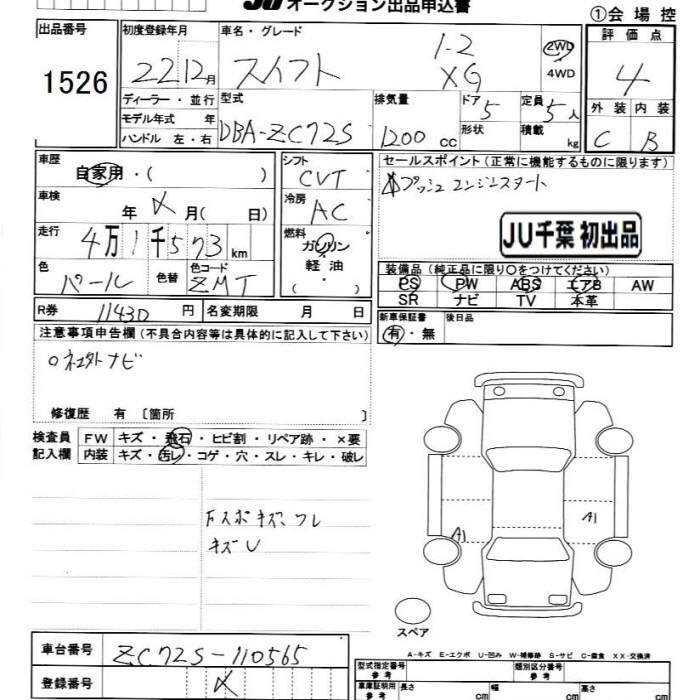 JU オークション出品申込書
①会場控
出品番号
1526
初度登録年月
22 12月
車名・グレード
スイフト
1.2
XG
2WD
4WD
評価点
4
外装 内装
C B
ディーラー・並行
モデル年式 年
ハンドル 左・右
型式
DBA-ZC72S
排気量
1200 cc
ドア
5
形状
定員
5人
積載 kg
車歴
自家用・( )
車検
年 月( 日)
走行
4万1千573km
色
パール
色替
色コード
ZMT
シフト
CVT
冷房
AC
燃料
ガソリン
軽油
・( )
セールスポイント(正常に機能するものに限ります)
プッシュエンジンスタート
JU千葉 初出品
装備品(純正品に限り○をつけてください)
PS PW ABS エアB AW
SR ナビ TV 本革
R券 11430 円
名変期限 月 日
新車保証書
有・無
後日品
注意事項申告欄(不具合内容等は具体的に記入して下さい)
ナビ
修復歴 有 〔箇所 〕
検査員
記入欄
FW キズ・飛石・ヒビ割・リペア跡・×要
内装 キズ・汚レ・コゲ・穴・スレ・キレ・破レ
Fスポキズ、ワレ
キズU
A1
A1
スペア
A-キズ E-エクボ U-凹み W-補修跡 S-サビ C-腐食 XX-交換済
車台番号
ZC72S-110565
登録番号
型式指定番号
参考
類別区分番号
参考
車庫証明用
参考
長さ cm
幅 cm
高さ cm